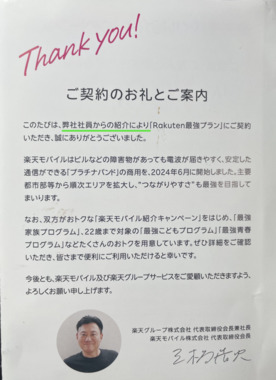 Thank you!
ご契約のお礼とご案内
このたびは、弊社社員からの紹介により「Rakuten最強プラン」にご契約
いただき、誠にありがとうございます。
楽天モバイルはビルなどの障害物があっても電波が届きやすく、安定した
通信ができる「プラチナバンド」の商用を、2024年6月に開始しました。主要
都市部等から順次エリアを拡大し、“つながりやすさ”も最強を目指して
まいります。
なお、双方がおトクな「楽天モバイル紹介キャンペーン」をはじめ、「最強
家族プログラム」、22歳まで対象の「最強こどもプログラム」「最強青春
プログラム」などたくさんのおトクを用意しています。ぜひ詳細をご確認
いただき、皆さまで便利にご利用いただけると幸いです。
今後とも、楽天モバイル及び楽天グループサービスをご愛顧いただきますよう、
よろしくお願い申し上げます。
楽天グループ株式会社 代表取締役会長兼社長
楽天モバイル株式会社 代表取締役会長
三木谷浩史